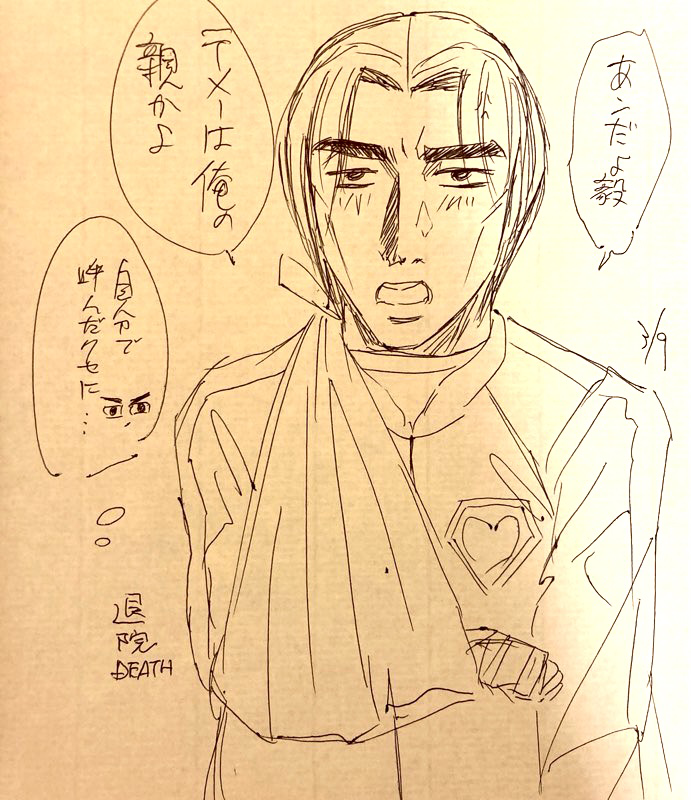 あンだよ毅
テメーは俺の
親かよ
自分で
呼んだクセに…
3/9
退
院
DEATH